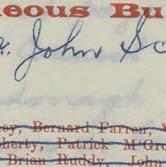 eous Bu
John Sc
ey, Bernard Farren,
herty, Patrick McGr
Brian Ruddy, John